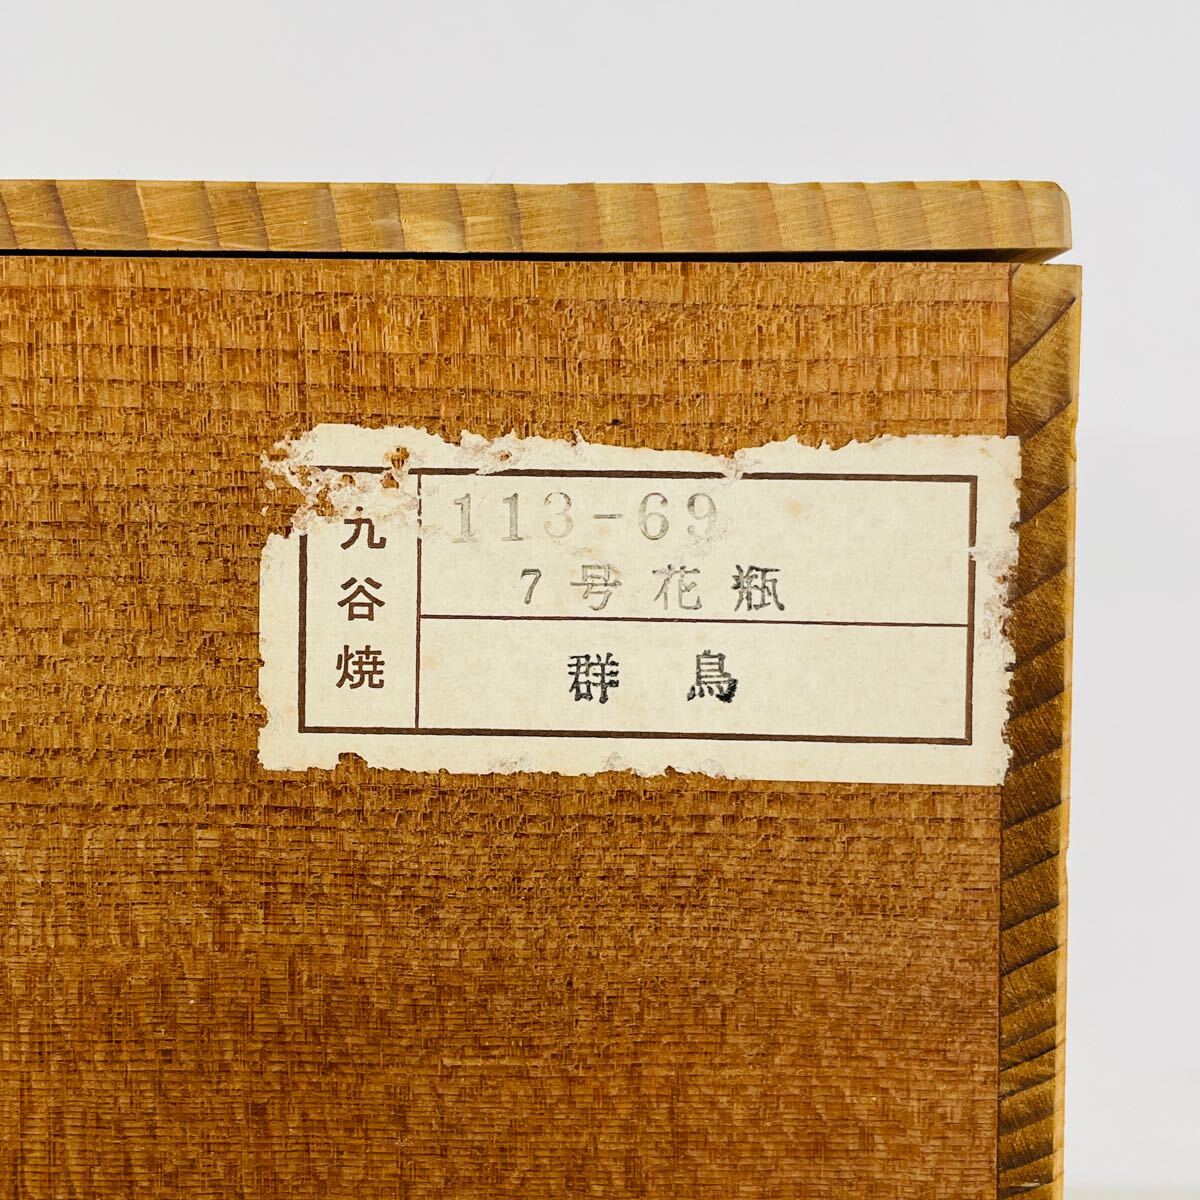 九谷焼
113-69
7号花瓶
群鳥